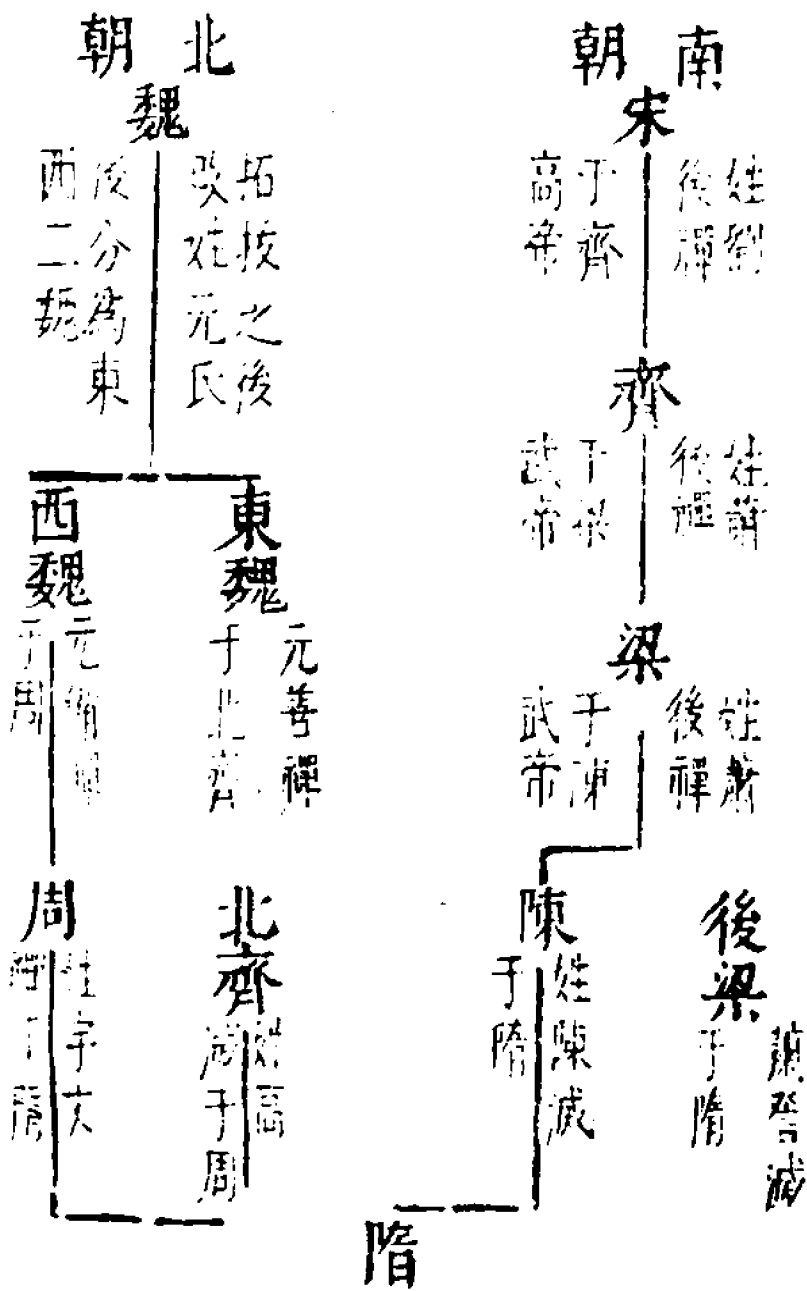 南朝
宋
姓劉
後禪
于齊
高帝
齊
姓蕭
後禪
于梁
武帝
梁
姓蕭
後禪
于陳
武帝
後梁
蕭詧滅
于隋
陳
姓陳滅
于隋
北朝
魏
拓拔之後
改姓元氏
後分為東
西二魏
東魏
元善禪
于北齊
西魏
元
于周
北齊
姓高
滅于周
周
姓宇文
禪于隋
隋